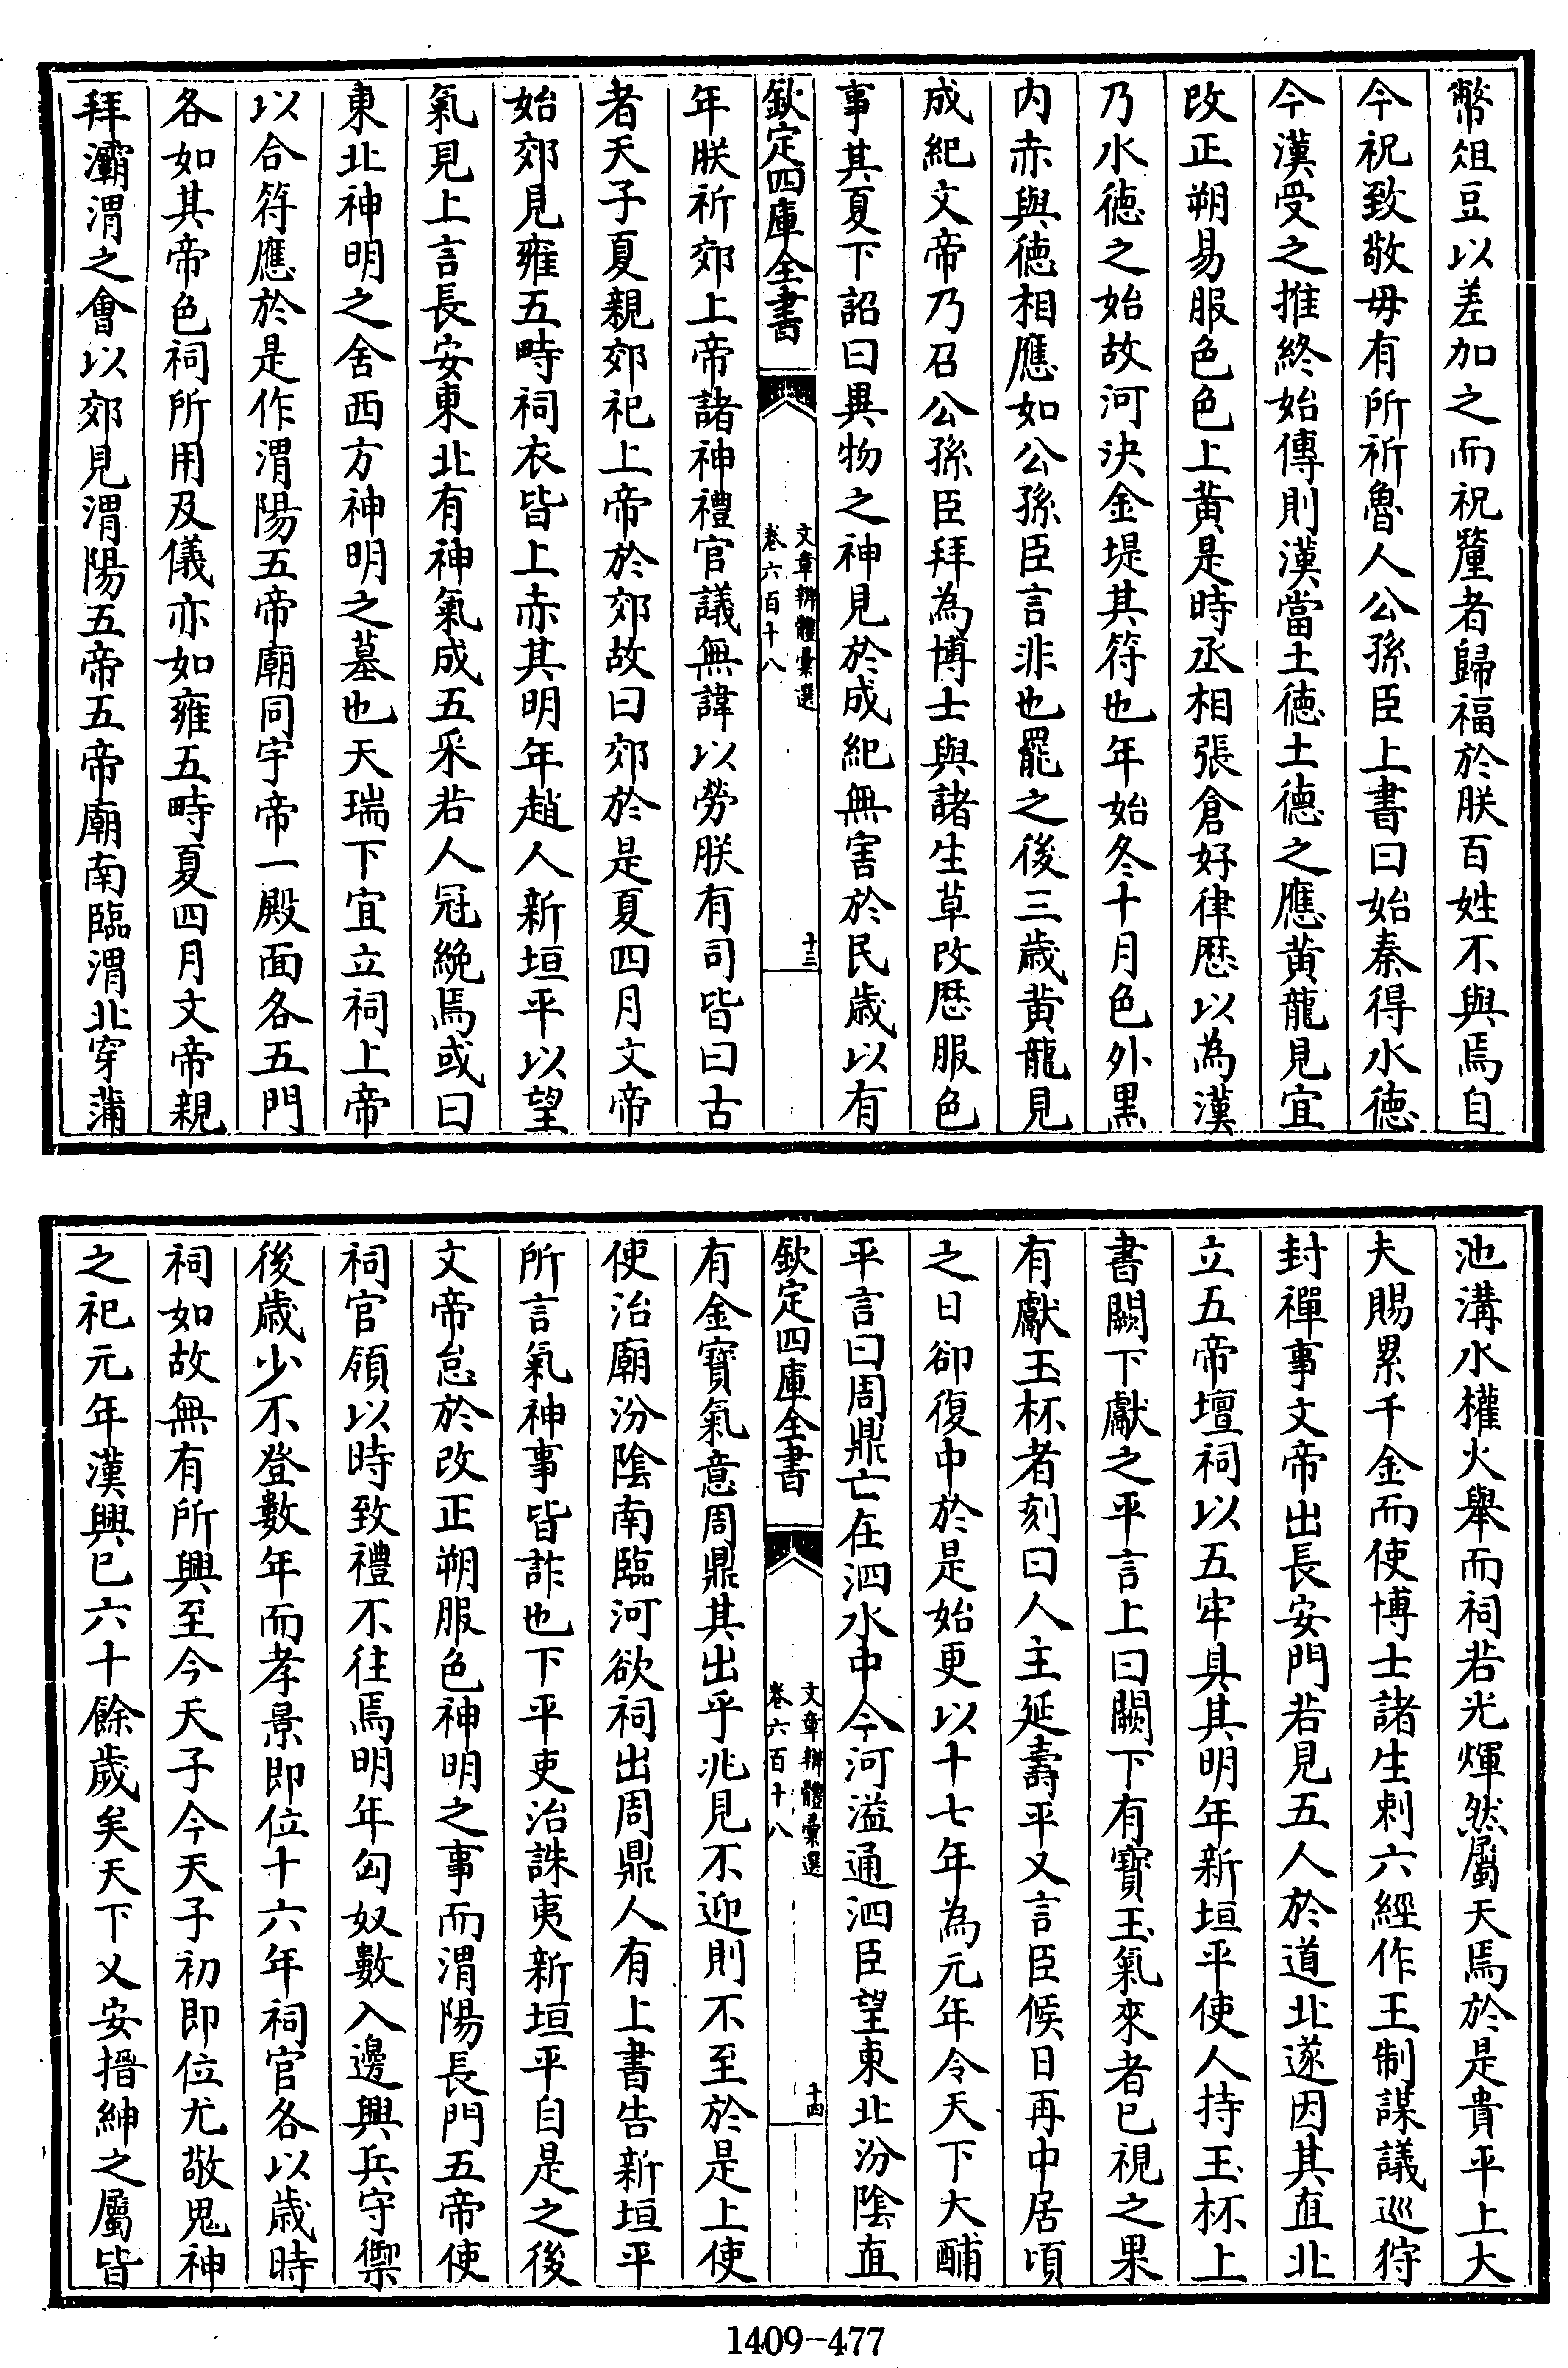 幣俎豆以差加之而祝釐者歸福於朕百姓不與焉自
今祝致敬毋有所祈魯人公孫臣上書曰始秦得水德
今漢受之推終始傳則漢當土德土德之應黃龍見宜
改正朔易服色色上黃是時丞相張倉好律厯以為漢
乃水德之始故河決金堤其符也年始冬十月色外黒
内赤與德相應如公孫臣言非也罷之後三歲黃龍見
成紀文帝乃召公孫臣拜為博士與諸生草改厯服色
事其夏下詔曰異物之神見於成紀無害於民歲以有
欽定四庫全書
文章辨體彙選
卷六百十八
十三
年朕祈郊上帝諸神禮官議無諱以勞朕有司皆曰古
者天子夏親郊祀上帝於郊故曰郊於是夏四月文帝
始郊見雍五畤祠衣皆上赤其明年趙人新垣平以望
氣見上言長安東北有神氣成五采若人冠絻焉或曰
東北神明之舍西方神明之墓也天瑞下宜立祠上帝
以合符應於是作渭陽五帝廟同宇帝一殿面各五門
各如其帝色祠所用及儀亦如雍五畤夏四月文帝親
拜灞渭之會以郊見渭陽五帝五帝廟南臨渭北穿蒲
池溝水權火舉而祠若光煇然屬天焉於是貴平上大
夫賜累千金而使博士諸生刺六經作王制謀議巡狩
封禪事文帝出長安門若見五人於道北遂因其直北
立五帝壇祠以五牢具其明年新垣平使人持玉杯上
書闕下獻之平言上曰闕下有寶玉氣來者已視之果
有獻玉杯者刻曰人主延壽平又言臣候日再中居頃
之日卻復中於是始更以十七年為元年令天下大酺
平言曰周鼎亡在泗水中今河溢通泗臣望東北汾陰直
欽定四庫全書
文章辨體彙選
卷六百十八
十四
有金寶氣意周鼎其出乎兆見不迎則不至於是上使
使治廟汾陰南臨河欲祠出周鼎人有上書告新垣平
所言氣神事皆詐也下平吏治誅夷新垣平自是之後
文帝怠於改正朔服色神明之事而渭陽長門五帝使
祠官領以時致禮不往焉明年匈奴數入邊興兵守禦
後歲少不登數年而孝景即位十六年祠官各以歲時
祠如故無有所興至今天子今天子初即位尤敬鬼神
之祀元年漢興已六十餘歲矣天下乂安搢紳之屬皆
1409-477